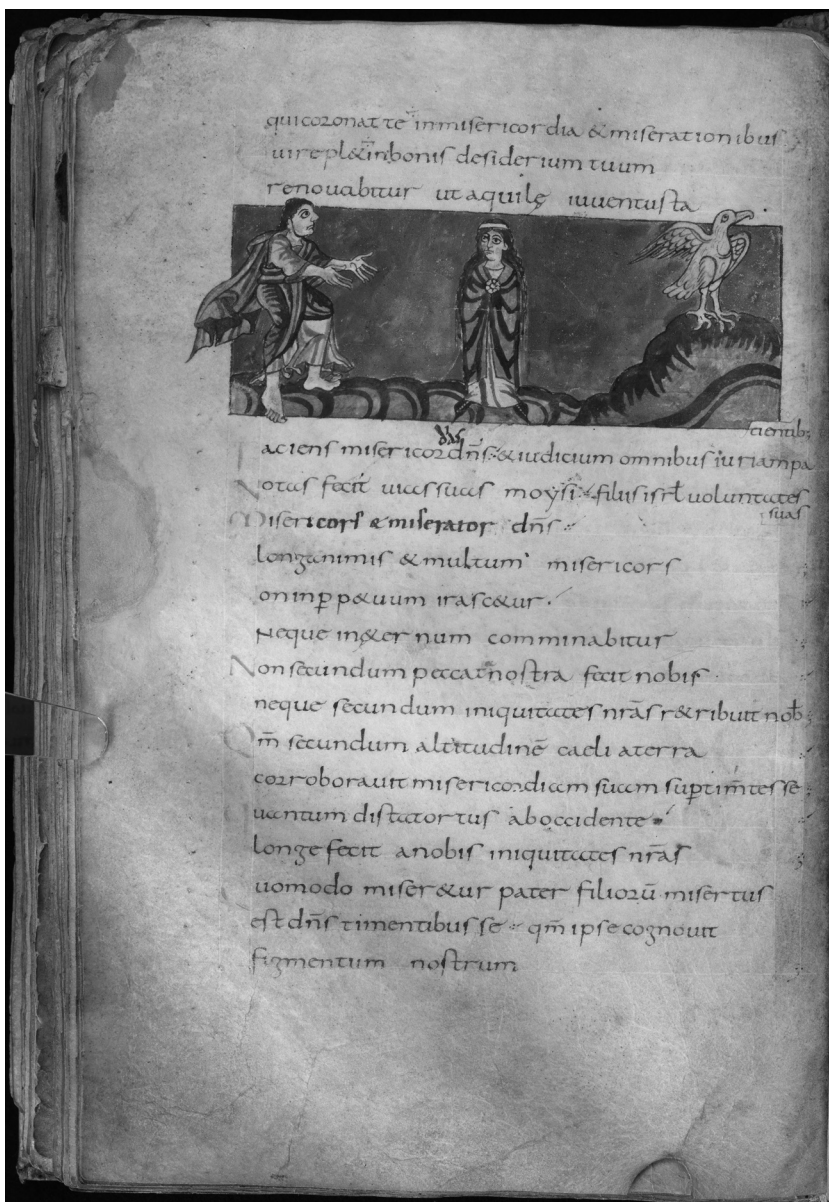 qui coronat te in misericordia & miserationibus
qui repl& in bonis desiderium tuum
renovabitur ut aquilę iuventus ta
cientib;
Faciens misericordias dn̄s & iudicium omnibus iuriam pa
Notas fecit uias suas moysi filiis isrl̄ uoluntates
suas
Misericors & miserator dn̄s
longanimis & multum misericors
on in pp&uum irasc&ur
Neque in &ernum comminabitur
Non secundum peccata nostra fecit nobis
neque secundum iniquitates nrās r&ribuit nob̄
Qm̄ secundum altitudinē caeli a terra
corroborauit misericordiam suam sup timtes se
uantum distat ortus ab occidente
longe fecit a nobis iniquitates nrās
uomodo miser&ur pater filiorū misertus
est dn̄s timentibus se qm̄ ipse cognouit
figmentum nostrum